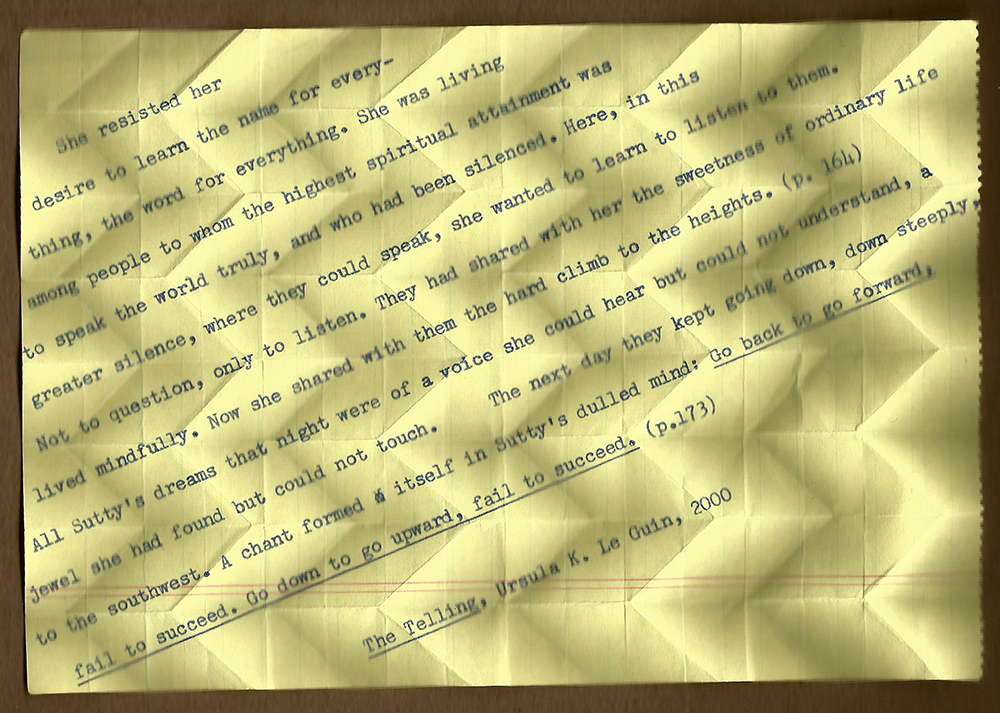 She resisted her
desire to learn the name for every-
thing, the word for everything. She was living
among people to whom the highest spiritual attainment was
to speak the world truly, and who had been silenced. Here, in this
greater silence, where they could speak, she wanted to learn to listen to them.
Not to question, only to listen. They had shared with her the sweetness of ordinary life
lived mindfully. Now she shared with them the hard climb to the heights. (p. 164)
All Sutty's dreams that night were of a voice she could hear but could not understand, a
jewel she had found but could not touch. The next day they kept going down, down steeply,
to the southwest. A chant formed itself in Sutty's dulled mind: Go back to go forward,
fail to succeed. Go down to go upward, fail to succeed. (p.173)
The Telling, Ursula K. Le Guin, 2000